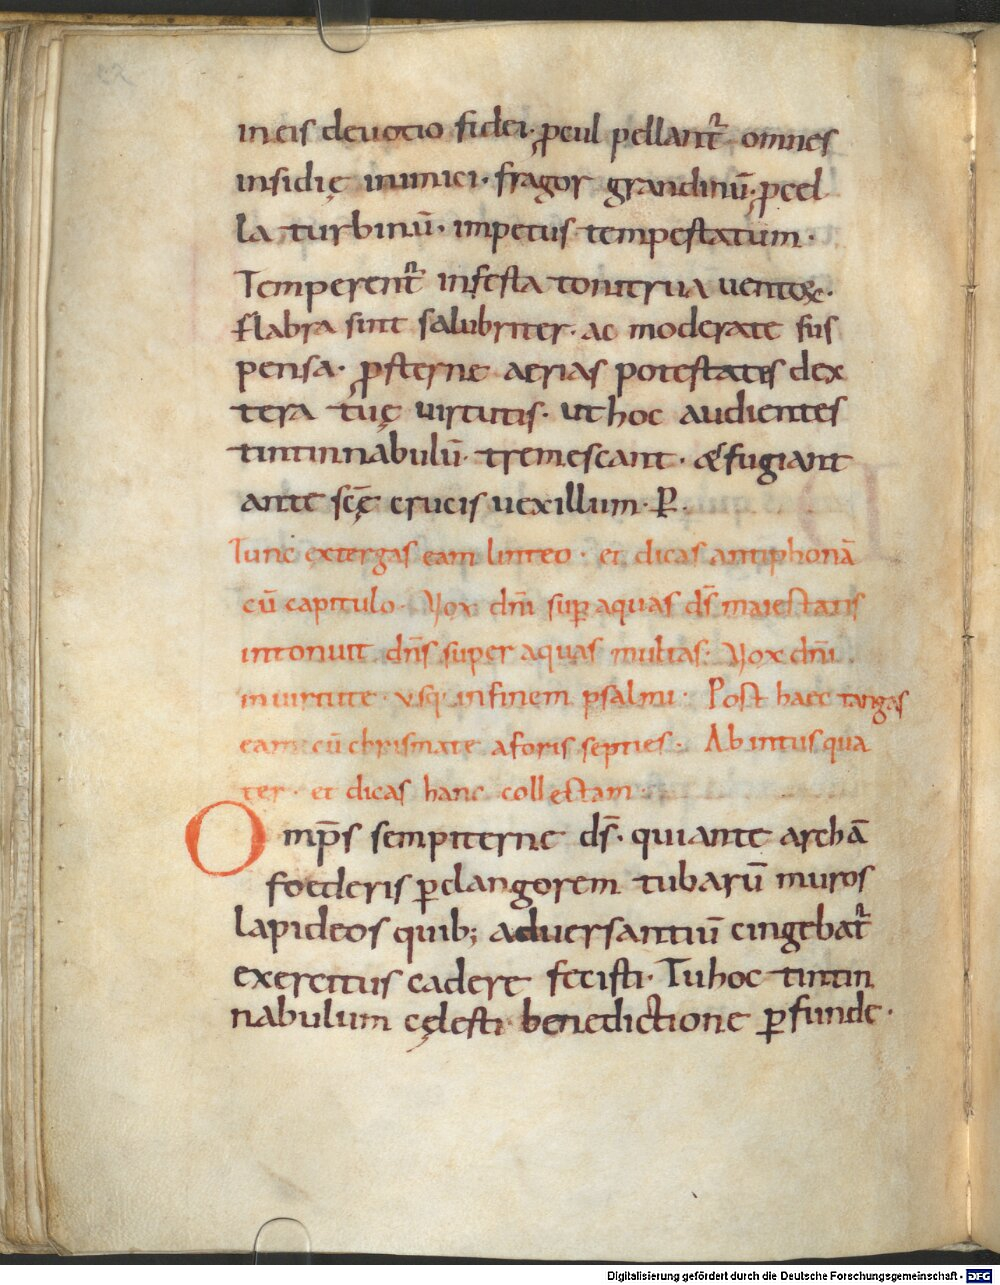 in eis deuotio fidei· ꝓcul pellant᷑ omnes
insidię inimici· fragor grandinū· ꝓcel
la turbinū· impetus tempestatum·
Temperent᷑ infesta tonitrua uentoꝝ·
flabra sint salubriter· ac moderate sus
pensa· ꝓsterne aerias potestates dex
tera tuę uirtutis· ut hoc audientes
tintinnabulū· tremescant· &fugiant
ante scę̄ crucis uexillum· P̱·
Tunc extergas eam linteo· et dicas antiphonā
cū capitulo· Vox dn̄i suꝑ aquas ds̄ maiestatis
intonuit dn̄s super aquas multas· Vox dn̄i
in uirtute· usq· in finem psalmi· Post haec tangas
eam cū chrismate aforis septies· Ab intus qua
ter· et dicas hanc collectam·
Omp̄s sempiterne ds̄· qui ante archā
foederis ꝑ clangorem tubarū muros
lapideos quib; aduersantiū cingebat᷑
exercitus cadere fecisti· Tu hoc tintin
nabulum cęlesti benedictione ꝑfunde·
Digitalisierung gefördert durch die Deutsche Forschungsgemeinschaft - DFG